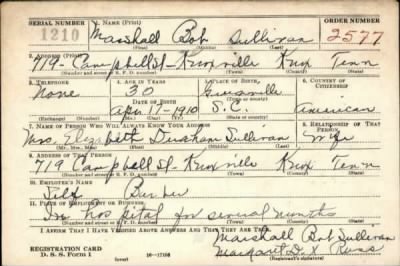 SERIAL NUMBER 1. NAME (Print) ORDER NUMBER
1210 Marshall Bob Sullivan 2577
(First) (Middle) (Last)
2. ADDRESS (Print)
719 - Campbell St - Knoxville Knox Tenn
(Number and street or R. F. D. number) (Town) (County) (State)
3. TELEPHONE 4. AGE IN YEARS 5. PLACE OF BIRTH 6. COUNTRY OF CITIZENSHIP
None 30
DATE OF BIRTH
Apr. 17 - 1910 S.C. American
(Mo.) (Day) (Yr.)
7. NAME OF PERSON WHO WILL ALWAYS KNOW YOUR ADDRESS 8. RELATIONSHIP OF THAT PERSON
Mrs. Elizabeth Durham Sullivan Wife
(Mr., Mrs., Miss) (First) (Middle) (Last)
9. ADDRESS OF THAT PERSON
719 Campbell St - Knoxville Knox Tenn
(Number and street or R. F. D. number) (Town) (County) (State)
10. EMPLOYER'S NAME
11. PLACE OF EMPLOYMENT OR BUSINESS
In hospital for several months
(Number and street or R. F. D. number) (Town) (County) (State)
I AFFIRM THAT I HAVE VERIFIED ABOVE ANSWERS AND THAT THEY ARE TRUE.
Marshall Bob Sullivan
REGISTRATION CARD
D. S. S. Form 1 (over) Margaret D. Russ